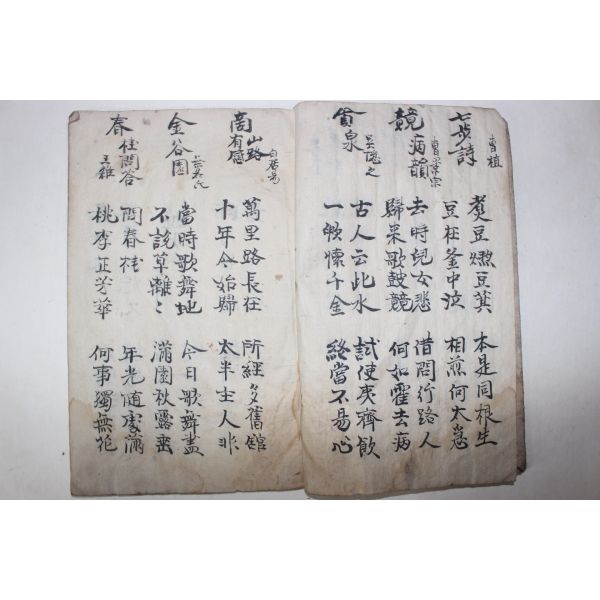 七步詩 曹植
煮豆燃豆萁 本是同根生
豆在釜中泣 相煎何太急
競病韻 曹景宗
去時兒女悲 借問行路人
歸来歌鼓競 何如霍去病
貪泉 吳隱之
古人云此水 試使夷齊飲
一歃懷千金 終當不易心
商山路有感 白居易
萬里路長在 所經多舊館
十年今始歸 太半主人非
金谷園 氏
當時歌舞地 今日歌舞盡
不說草離〻 滿園秋露垂
春桂問答 王維
問春桂 年光隨處滿
桃李正芳華 何事獨無花